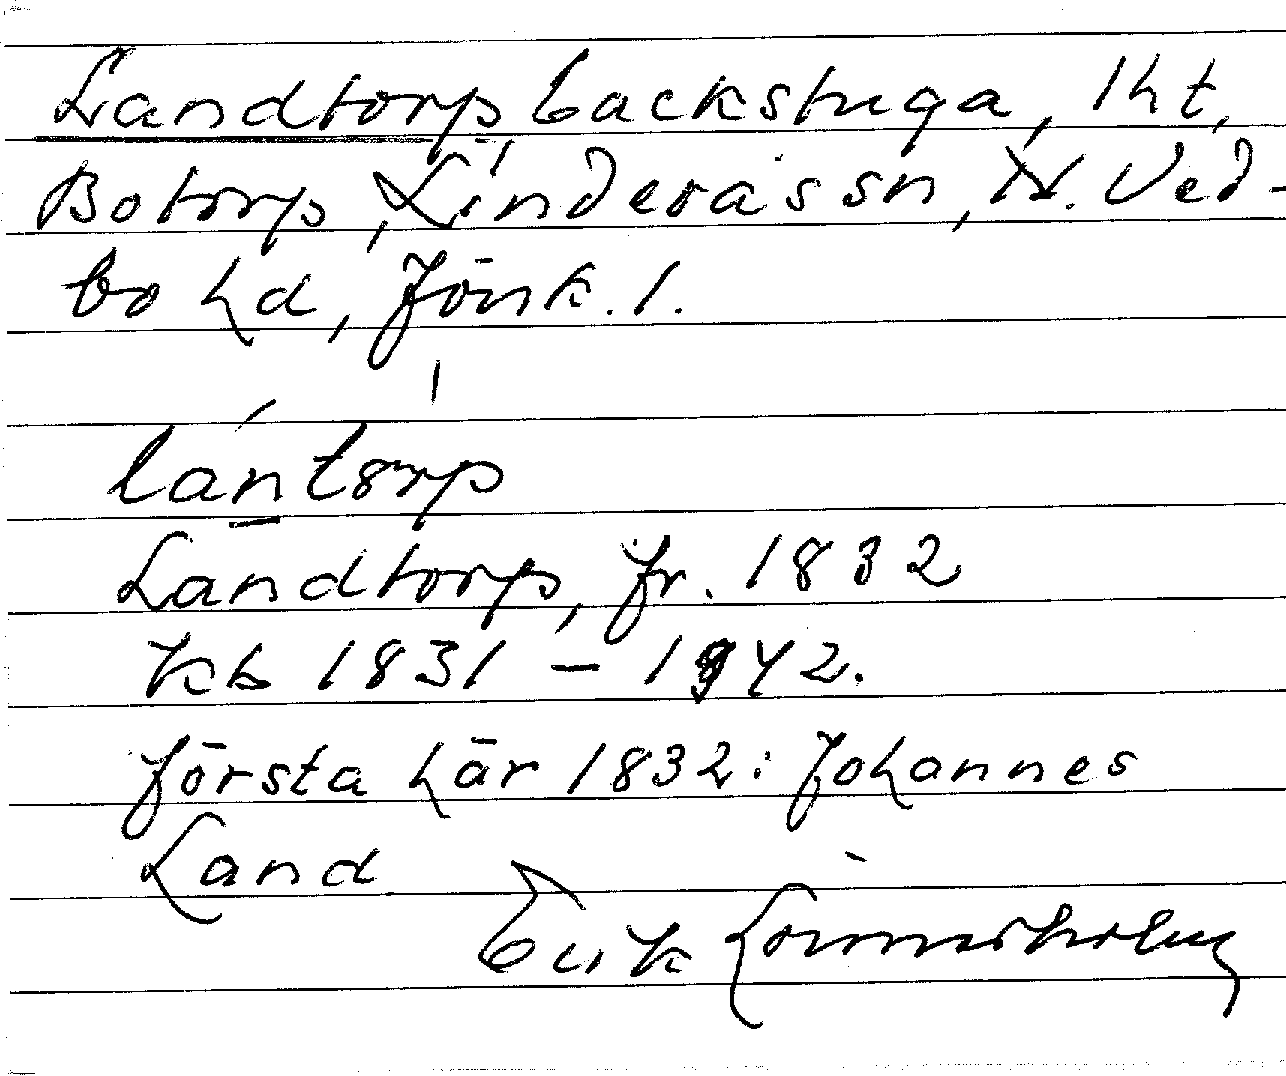 Landtorp, backstuga, 1ht,
Botorp, Linderås sn, N. Ved-
bo hd, Jönk. l.
lántòrp
Landtorp, fr. 1832
kb 1831 – 1942.
första här 1832: Johannes
Land
Erik Lönnerholm